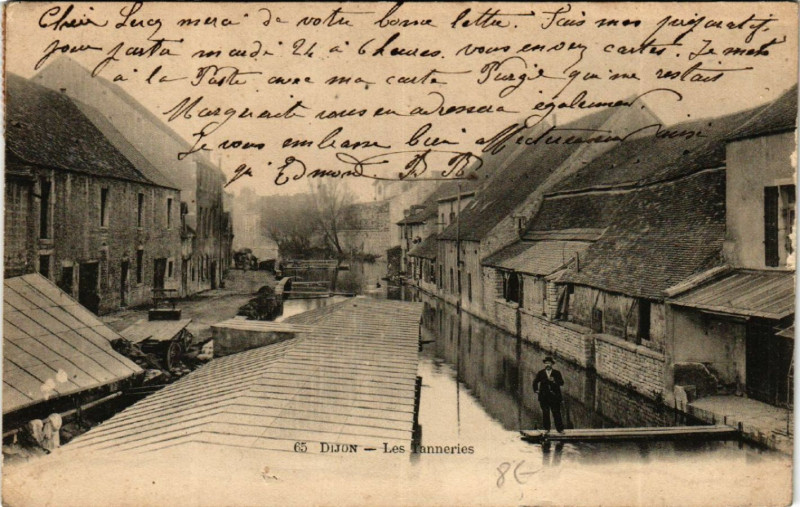 Chère Lercy merci de votre bonne lettre. Fais mes préparatifs
pour partir mardi 24 à 6 heures. vous enverrez cartes. Je mets
à la Poste avec ma carte qui me restait
Marguerite vous en adressera également
Je vous embrasse bien affectueusement ainsi
qu'Edmond. B B
65 DIJON — Les Tanneries
8€